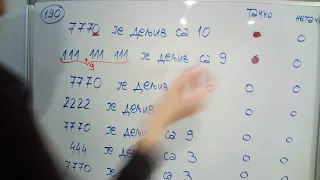 190
тачно нетачно
7770 је дељив са 10
111 111 111 је дељив са 9
9
7770 је дељив
2222 је дељив
7770 је дељив са 9
444 је дељив са 3
7770 је дељив са 3